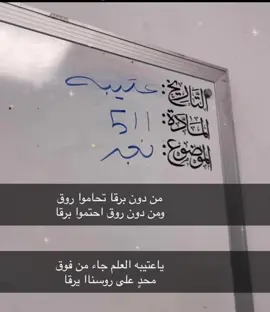 التاريخ: عتيبه
المادة: 511
الموضوع: نجد
من دون برقا تحاموا روق
ومن دون روق احتموا برقا
ياعتيبه العلم جاء من فوق
محدٍ على روسناا يرقا